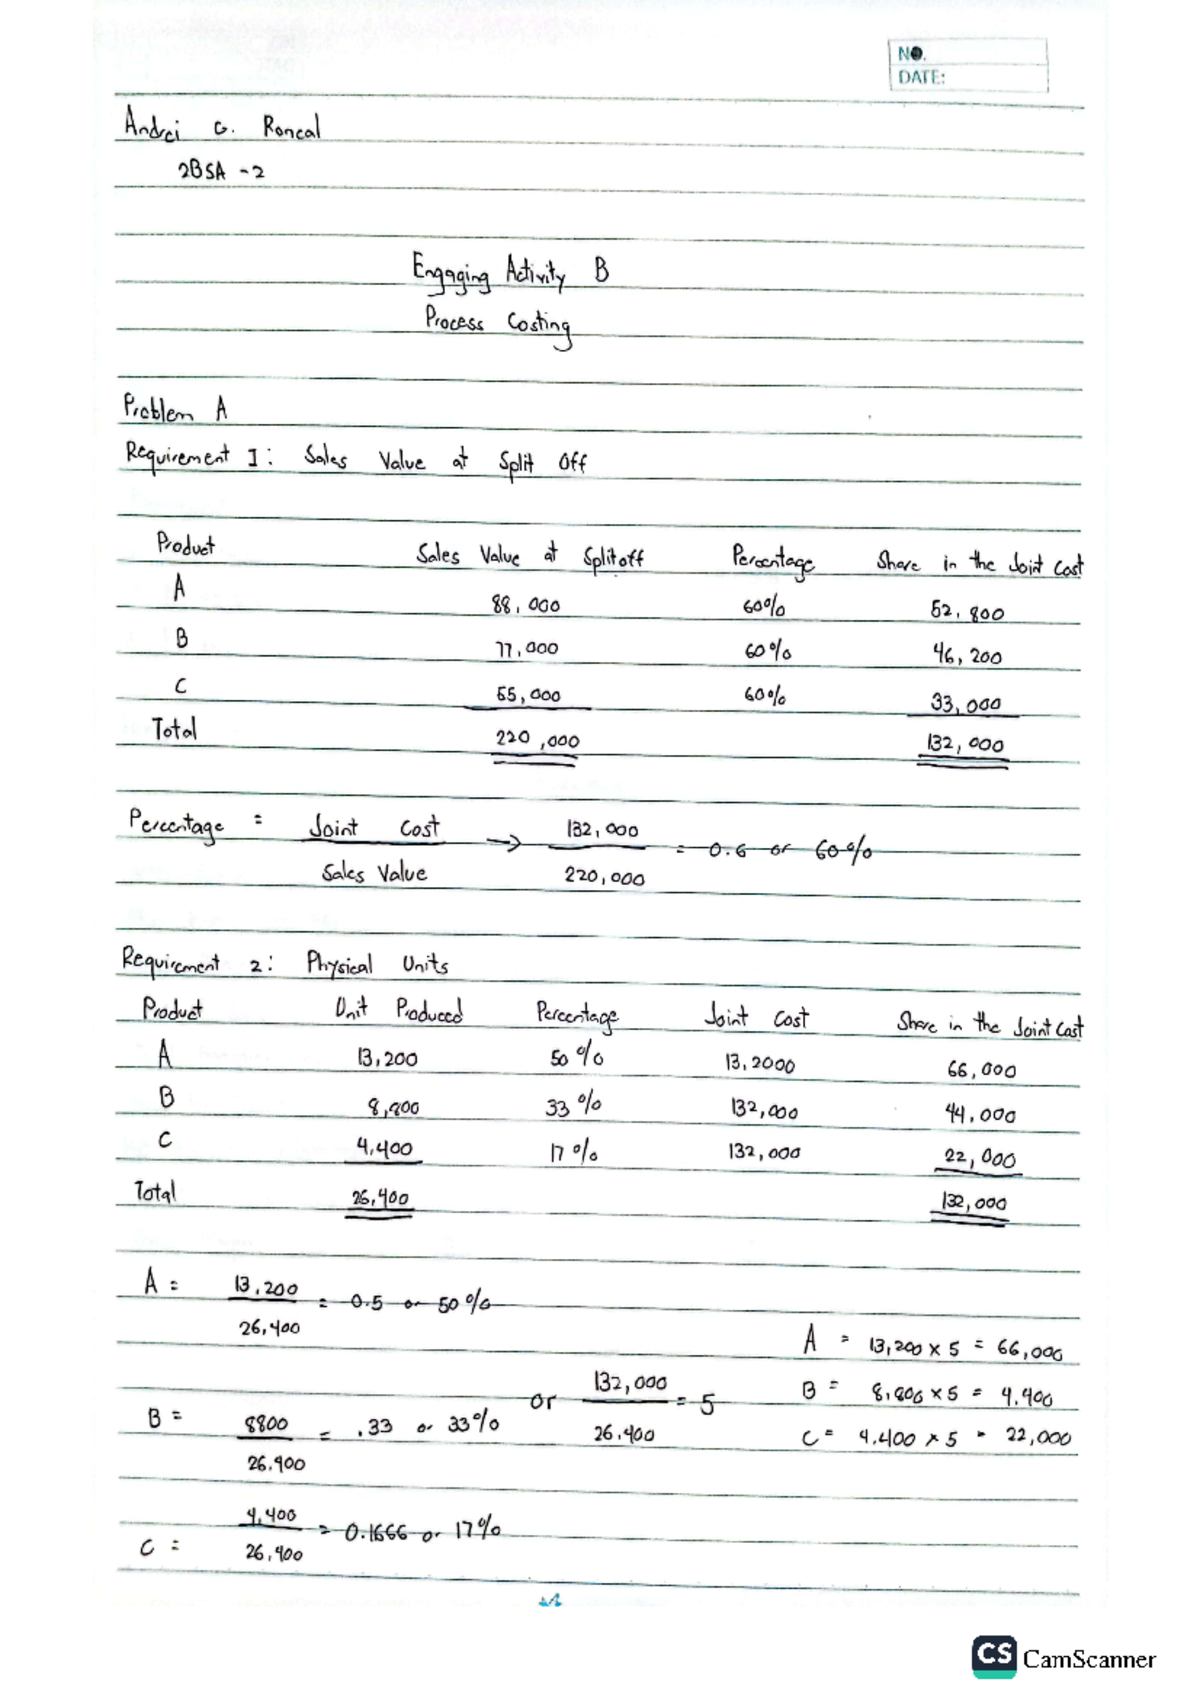 NO.
DATE:
Andrei G. Roncal
2BSA -2
Engaging Activity B
Process Costing
Problem A
Requirement 1: Sales Value at Split Off
Product Sales Value at Splitoff Percentage Share in the Joint Cost
A 88,000 60% 52,800
B 77,000 60% 46,200
C 55,000 60% 33,000
Total 220,000 132,000
Percentage = Joint Cost → 132,000 = 0.6 or 60%
Sales Value 220,000
Requirement 2: Physical Units
Product Unit Produced Percentage Joint Cost Share in the Joint Cost
A 13,200 50% 13,2000 66,000
B 8,800 33% 132,000 44,000
C 4,400 17% 132,000 22,000
Total 26,400 132,000
A = 13,200 = 0.5 or 50%
26,400
A = 13,200 x 5 = 66,000
or 132,000 = 5
26,400
B = 8,800 x 5 = 4,400
B = 8800 = .33 or 33%
26,400
C = 4,400 x 5 = 22,000
C = 4,400 = 0.1666 or 17%
26,400
CS CamScanner